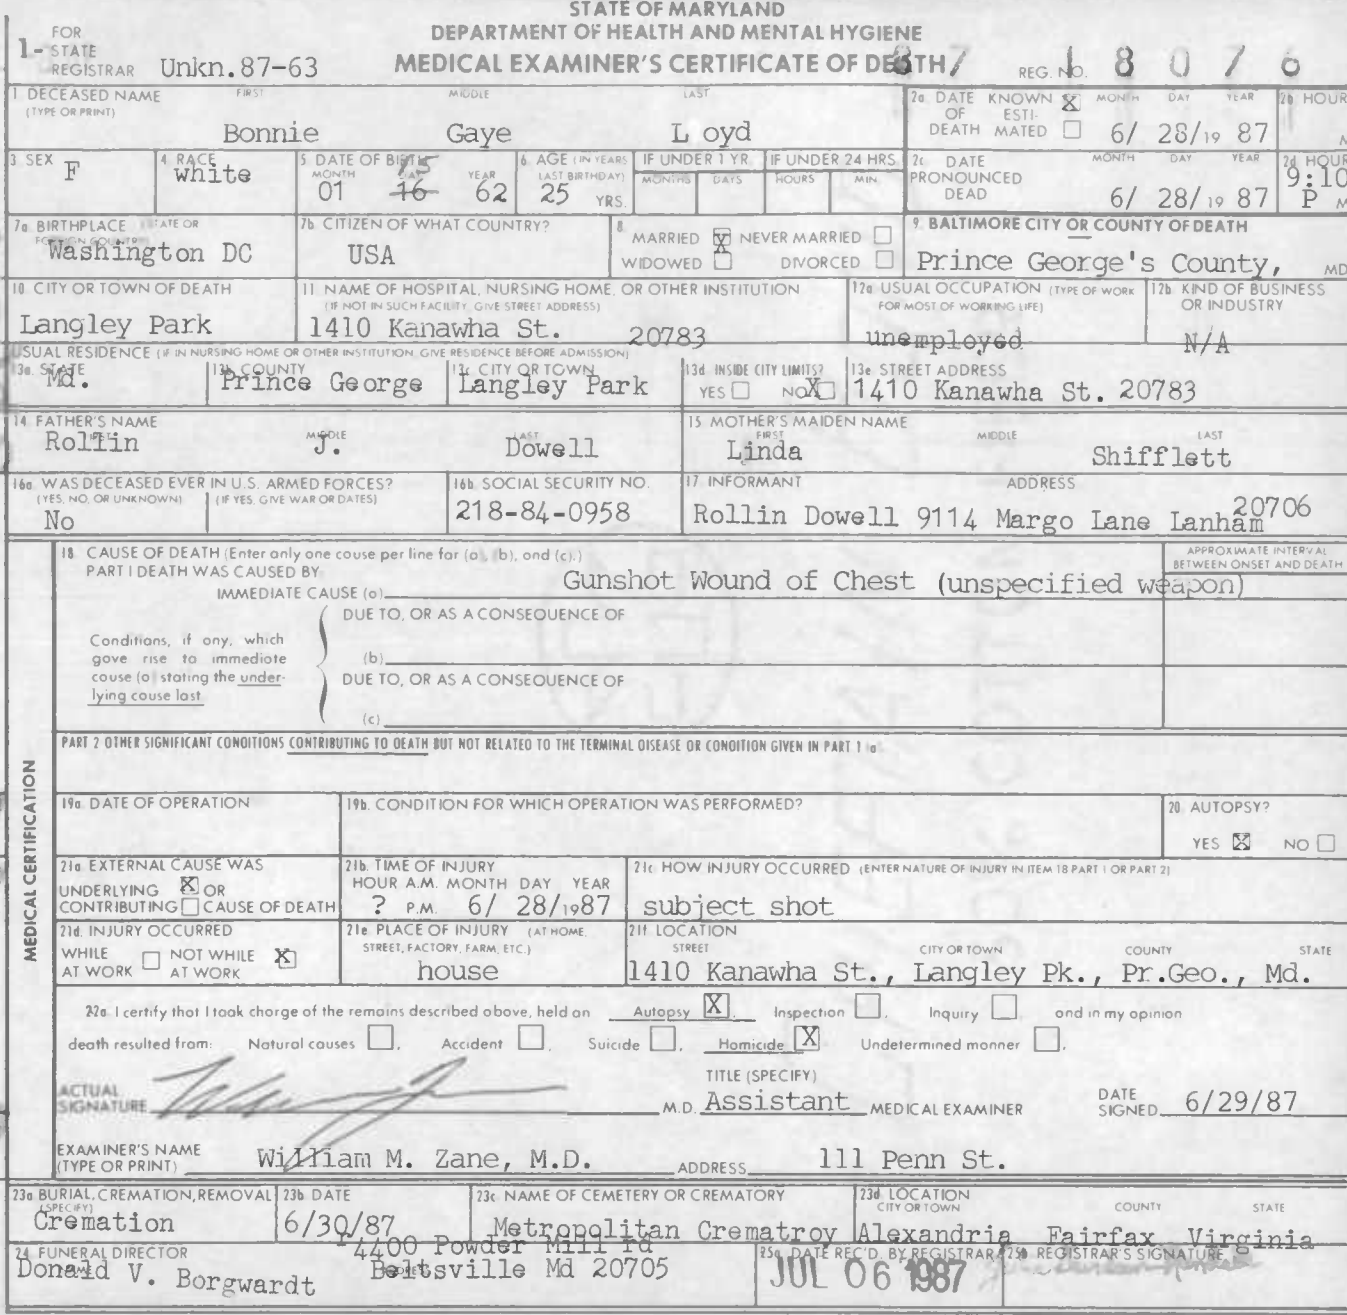 STATE OF MARYLAND
DEPARTMENT OF HEALTH AND MENTAL HYGIENE
MEDICAL EXAMINER'S CERTIFICATE OF DEATH
1- FOR STATE REGISTRAR Unkn.87-63
87 REG. NO. 18076
1 DECEASED NAME (TYPE OR PRINT) FIRST MIDDLE LAST
Bonnie Gaye L oyd
2a DATE OF DEATH KNOWN X ESTIMATED MONTH DAY YEAR 6/ 28/19 87
2b HOUR M
3 SEX F
4 RACE white
5 DATE OF BIRTH MONTH DAY YEAR 01 16 15 62
6 AGE (IN YEARS LAST BIRTHDAY) 25 YRS.
IF UNDER 1 YR. MONTHS DAYS
IF UNDER 24 HRS. HOURS MIN.
2c DATE PRONOUNCED DEAD MONTH DAY YEAR 6/ 28/19 87
2d HOUR 9:10 P M
7a BIRTHPLACE (STATE OR FOREIGN COUNTRY) Washington DC
7b CITIZEN OF WHAT COUNTRY? USA
8 MARRIED X NEVER MARRIED
WIDOWED DIVORCED
9 BALTIMORE CITY OR COUNTY OF DEATH
Prince George's County, MD
10 CITY OR TOWN OF DEATH
Langley Park
11 NAME OF HOSPITAL, NURSING HOME, OR OTHER INSTITUTION
(IF NOT IN SUCH FACILITY, GIVE STREET ADDRESS)
1410 Kanawha St. 20783
12a USUAL OCCUPATION (TYPE OF WORK FOR MOST OF WORKING LIFE)
unemployed
12b KIND OF BUSINESS OR INDUSTRY
N/A
USUAL RESIDENCE (IF IN NURSING HOME OR OTHER INSTITUTION, GIVE RESIDENCE BEFORE ADMISSION)
13a STATE Md.
13b COUNTY Prince George
13c CITY OR TOWN Langley Park
13d INSIDE CITY LIMITS? YES NO X
13e STREET ADDRESS 1410 Kanawha St. 20783
14 FATHER'S NAME FIRST MIDDLE LAST
Rollin J. Dowell
15 MOTHER'S MAIDEN NAME FIRST MIDDLE LAST
Linda Shifflett
16a WAS DECEASED EVER IN U.S. ARMED FORCES?
(YES, NO, OR UNKNOWN) (IF YES, GIVE WAR OR DATES)
No
16b SOCIAL SECURITY NO.
218-84-0958
17 INFORMANT ADDRESS
Rollin Dowell 9114 Margo Lane Lanham 20706
MEDICAL CERTIFICATION
18 CAUSE OF DEATH (Enter only one cause per line for (a), (b), and (c).)
PART I DEATH WAS CAUSED BY
IMMEDIATE CAUSE (a) Gunshot Wound of Chest (unspecified weapon)
APPROXIMATE INTERVAL BETWEEN ONSET AND DEATH
Conditions, if any, which gave rise to immediate cause (a) stating the underlying cause last
DUE TO, OR AS A CONSEQUENCE OF
(b)
DUE TO, OR AS A CONSEQUENCE OF
(c)
PART 2 OTHER SIGNIFICANT CONDITIONS CONTRIBUTING TO DEATH BUT NOT RELATED TO THE TERMINAL DISEASE OR CONDITION GIVEN IN PART 1 a
19a DATE OF OPERATION
19b. CONDITION FOR WHICH OPERATION WAS PERFORMED?
20 AUTOPSY? YES X NO
21a EXTERNAL CAUSE WAS
UNDERLYING X OR
CONTRIBUTING CAUSE OF DEATH
21b. TIME OF INJURY
HOUR A.M. MONTH DAY YEAR
? P.M. 6/ 28/1987
21c HOW INJURY OCCURRED (ENTER NATURE OF INJURY IN ITEM 18 PART 1 OR PART 2)
subject shot
21d. INJURY OCCURRED
WHILE AT WORK NOT WHILE AT WORK X
21e PLACE OF INJURY (AT HOME, STREET, FACTORY, FARM, ETC.)
house
21f LOCATION STREET CITY OR TOWN COUNTY STATE
1410 Kanawha St., Langley Pk., Pr.Geo., Md.
22a I certify that I took charge of the remains described above, held an Autopsy X, Inspection, Inquiry and in my opinion
death resulted from: Natural causes, Accident, Suicide, Homicide X Undetermined manner.
ACTUAL SIGNATURE M.D.
TITLE (SPECIFY) Assistant MEDICAL EXAMINER
DATE SIGNED 6/29/87
EXAMINER'S NAME (TYPE OR PRINT) William M. Zane, M.D. ADDRESS 111 Penn St.
23a BURIAL, CREMATION, REMOVAL (SPECIFY)
Cremation
23b DATE
6/30/87
23c NAME OF CEMETERY OR CREMATORY
Metropolitan Crematroy
23d LOCATION CITY OR TOWN COUNTY STATE
Alexandria Fairfax Virginia
24 FUNERAL DIRECTOR NAME
Donald V. Borgwardt
4400 Powder Mill rd
Beltsville Md 20705
25a DATE REC'D. BY REGISTRAR
JUL 06 1987
25b REGISTRAR'S SIGNATURE